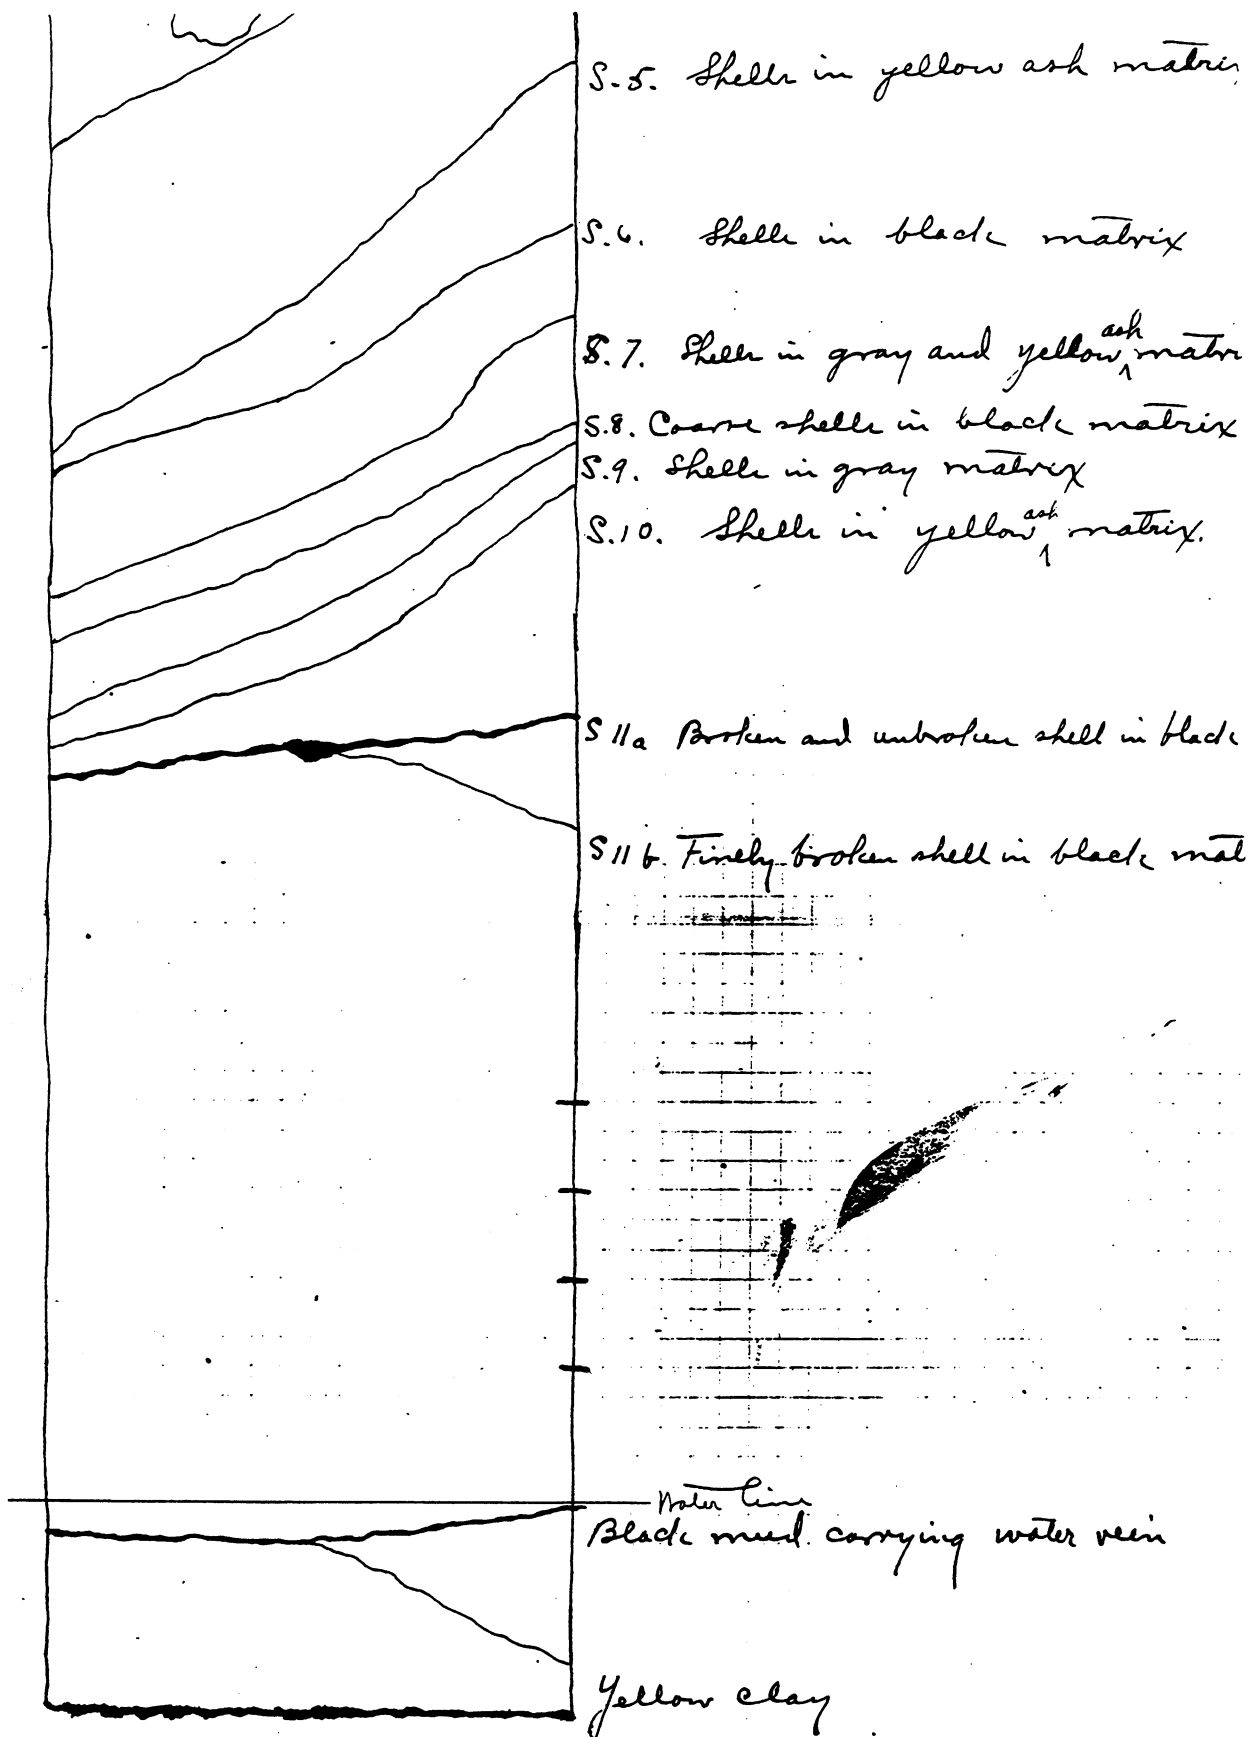 S.5. Shells in yellow ash matrix
S.6. Shells in black matrix
S.7. Shells in gray and yellow ash matri
S.8. Coarse shells in black matrix
S.9. Shells in gray matrix
S.10. Shells in yellow ash matrix.
S 11a Broken and unbroken shell in black
S 11 b. Finely broken shell in black mat
Water line
Black mud. carrying water vein
Yellow clay